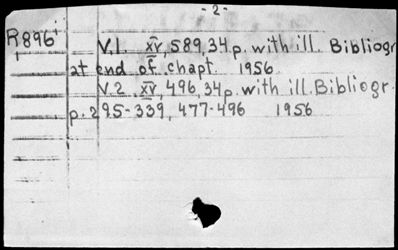 -2-
R896 V.1. xv, 589, 34 p. with ill. Bibliogr.
at end of chapt. 1956
V.2. xv, 496, 34 p. with ill. Bibliogr.
p. 295-339, 477-496 1956